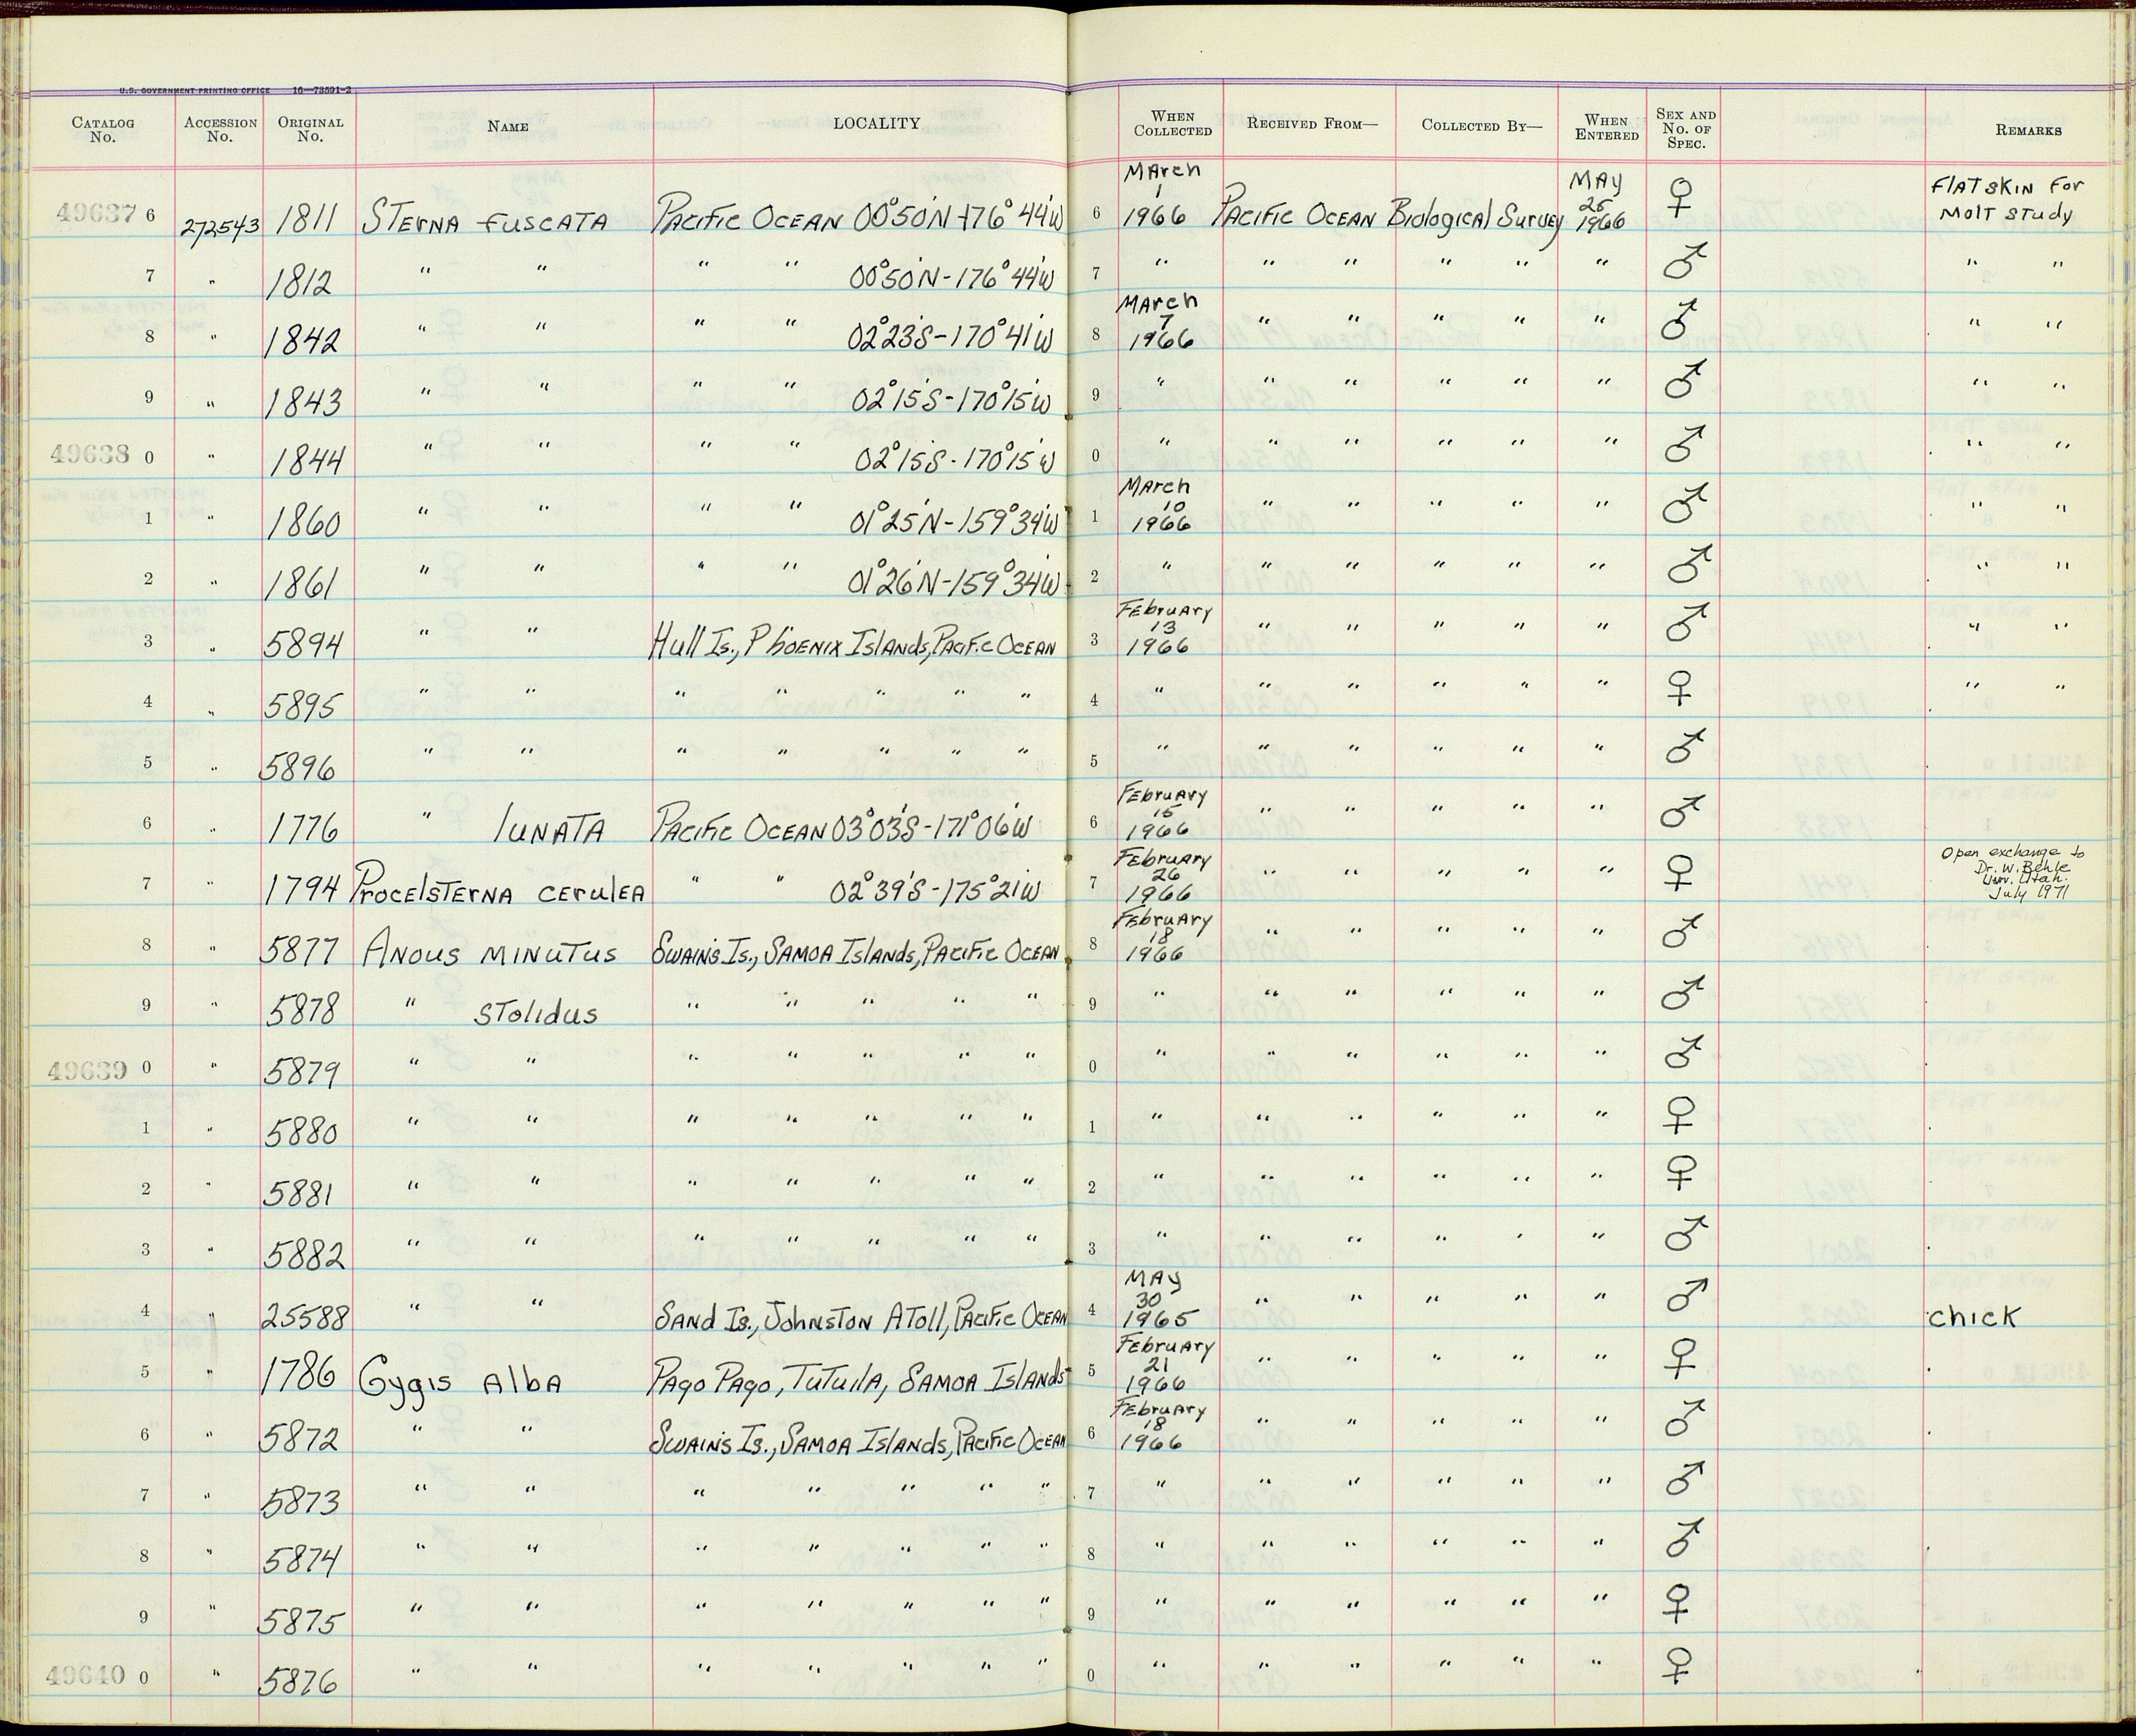 U.S. GOVERNMENT PRINTING OFFICE 16—73501-2
CATALOG No. ACCESSION No. ORIGINAL No. NAME LOCALITY WHEN COLLECTED RECEIVED FROM— COLLECTED BY— WHEN ENTERED SEX AND No. OF SPEC. REMARKS
49637 6 272543 1811 Sterna fuscata Pacific Ocean 00°50'N-176°44'W 6 March 1 1966 Pacific Ocean Biological Survey May 25 1966 ♀ Flat skin for Molt study
7 " 1812 " " " " 00°50'N-176°44'W 7 " " " " " " ♂ " "
8 " 1842 " " " " 02°23'S-170°41'W 8 March 7 1966 " " " " " ♂ " "
9 " 1843 " " " " 02°15'S-170°15'W 9 " " " " " " ♂ " "
49638 0 " 1844 " " " " 02°15'S-170°15'W 0 " " " " " " ♂ " "
1 " 1860 " " " " 01°25'N-159°34'W 1 March 10 1966 " " " " " ♂ " "
2 " 1861 " " " " 01°26'N-159°34'W 2 " " " " " " ♂ " "
3 " 5894 " " Hull Is., Phoenix Islands, Pacific Ocean 3 February 13 1966 " " " " " ♂ " "
4 " 5895 " " " " " " " 4 " " " " " " ♀ " "
5 " 5896 " " " " " " " 5 " " " " " " ♂
6 " 1776 " lunata Pacific Ocean 03°03'S-171°06'W 6 February 15 1966 " " " " " ♂
7 " 1794 Procelsterna cerulea " " 02°39'S-175°21'W 7 February 26 1966 " " " " " ♀ Open exchange to Dr. W. Behle Univ. Utah. July 1971
8 " 5877 Anous minutus Swain's Is., Samoa Islands, Pacific Ocean 8 February 18 1966 " " " " " ♂
9 " 5878 " stolidus " " " " " 9 " " " " " " ♂
49639 0 " 5879 " " " " " " " 0 " " " " " " ♂
1 " 5880 " " " " " " " 1 " " " " " " ♀
2 " 5881 " " " " " " " 2 " " " " " " ♀
3 " 5882 " " " " " " " 3 " " " " " " ♂
4 " 25588 " " Sand Is., Johnston Atoll, Pacific Ocean 4 May 30 1965 " " " " " ♂ chick
5 " 1786 Gygis alba Pago Pago, Tutuila, Samoa Islands 5 February 21 1966 " " " " " ♀
6 " 5872 " " Swain's Is., Samoa Islands, Pacific Ocean 6 February 18 1966 " " " " " ♂
7 " 5873 " " " " " " " 7 " " " " " " ♂
8 " 5874 " " " " " " " 8 " " " " " " ♂
9 " 5875 " " " " " " " 9 " " " " " " ♀
49640 0 " 5876 " " " " " " " 0 " " " " " " ♀